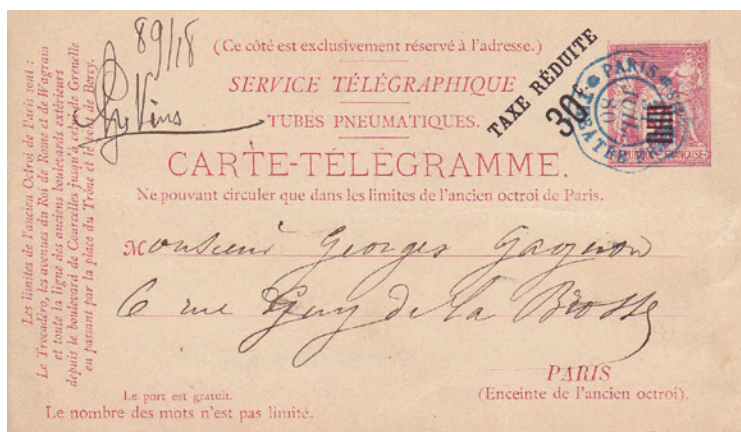 89/18
(Ce côté est exclusivement réservé à l'adresse.)
SERVICE TÉLÉGRAPHIQUE
TUBES PNEUMATIQUES.
TAXE RÉDUITE
30c.
PARIS
CARTE-TÉLÉGRAMME.
Ne pouvant circuler que dans les limites de l'ancien octroi de Paris.
Monsieur Georges Gagnon
6 rue Guy de la Brosse
PARIS
(Enceinte de l'ancien octroi).
Le port est gratuit.
Le nombre des mots n'est pas limité.
Les limites de l'ancien Octroi de Paris sont :
Le Trocadéro, les avenues du Roi de Rome et de Wagram
et toute la ligne des anciens boulevards extérieurs
depuis le boulevard de Courcelles jusqu'à celui de Grenelle
en passant par la place du Trône et le pont de Bercy.